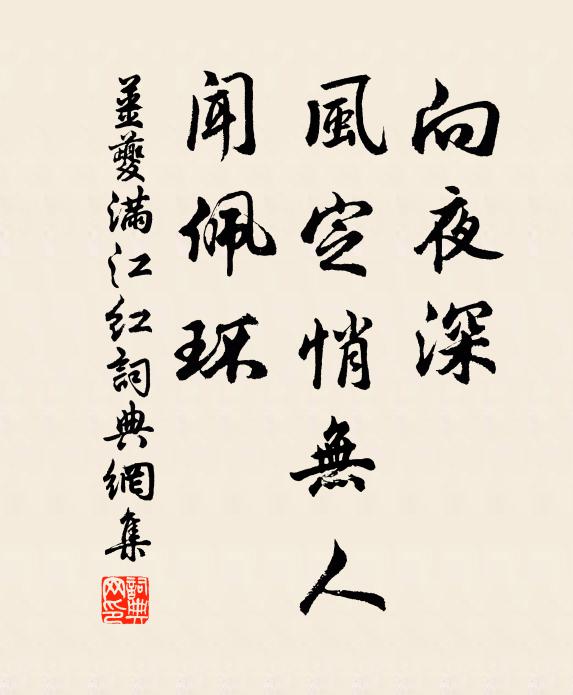 向夜深
風定悄無人
聞佩环
姜夔滿江红詞典網集
詞典网印